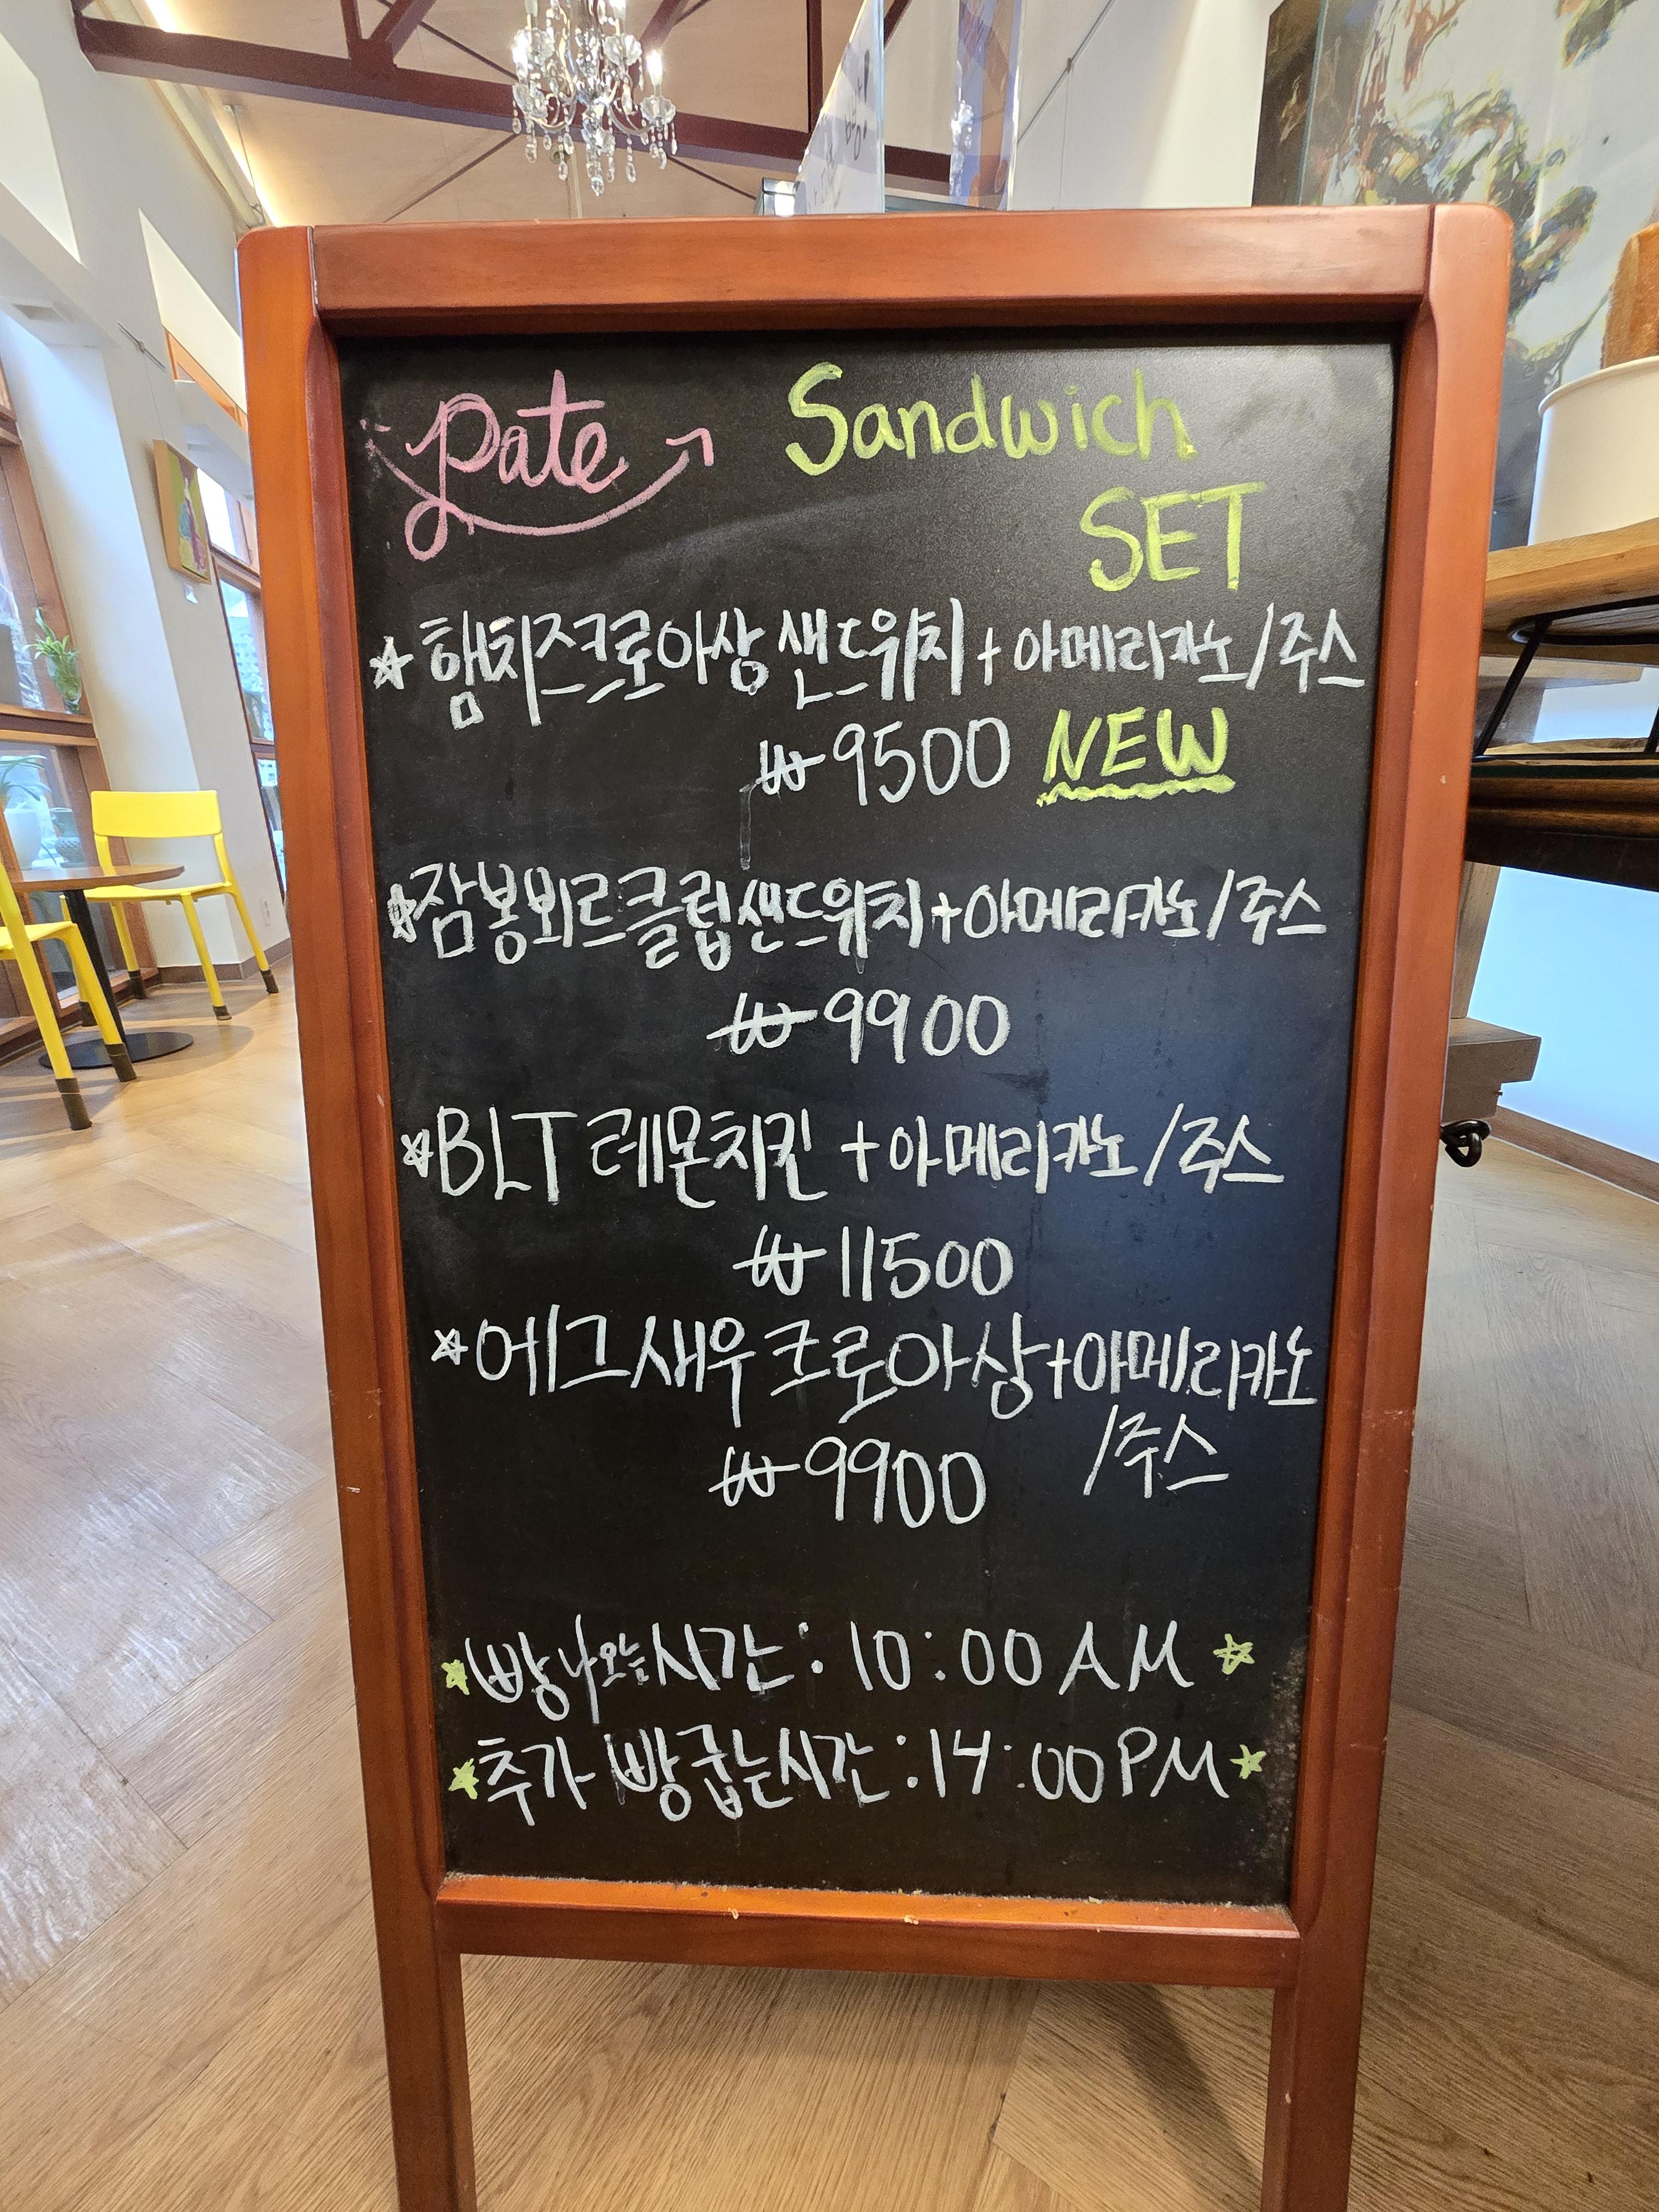 pate Sandwich
SET
☆ 햄치즈크로아상 샌드위치 + 아메리카노/주스
₩9500 NEW
☆ 잠봉뵈르클럽샌드위치+아메리카노/주스
₩9900
☆ BLT 레몬치킨 + 아메리카노/주스
₩11500
☆ 에그새우 크로아상+아메리카노
/주스
₩9900
☆ 빵나오는시간 : 10:00 AM ☆
☆ 추가 빵굽는시간 : 14:00PM ☆